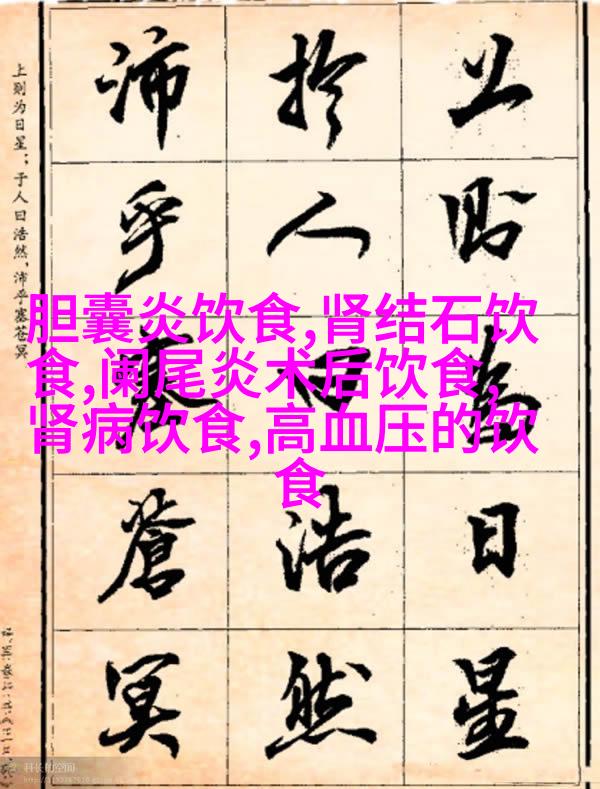 上則為日星
於人曰浩然
沛乎塞蒼冥
上则为日星；于人曰浩然，沛乎塞苍冥
胆囊炎饮食,肾结石饮
食,阑尾炎术后饮食,
肾病饮食,高血压的饮
食
科长的空间